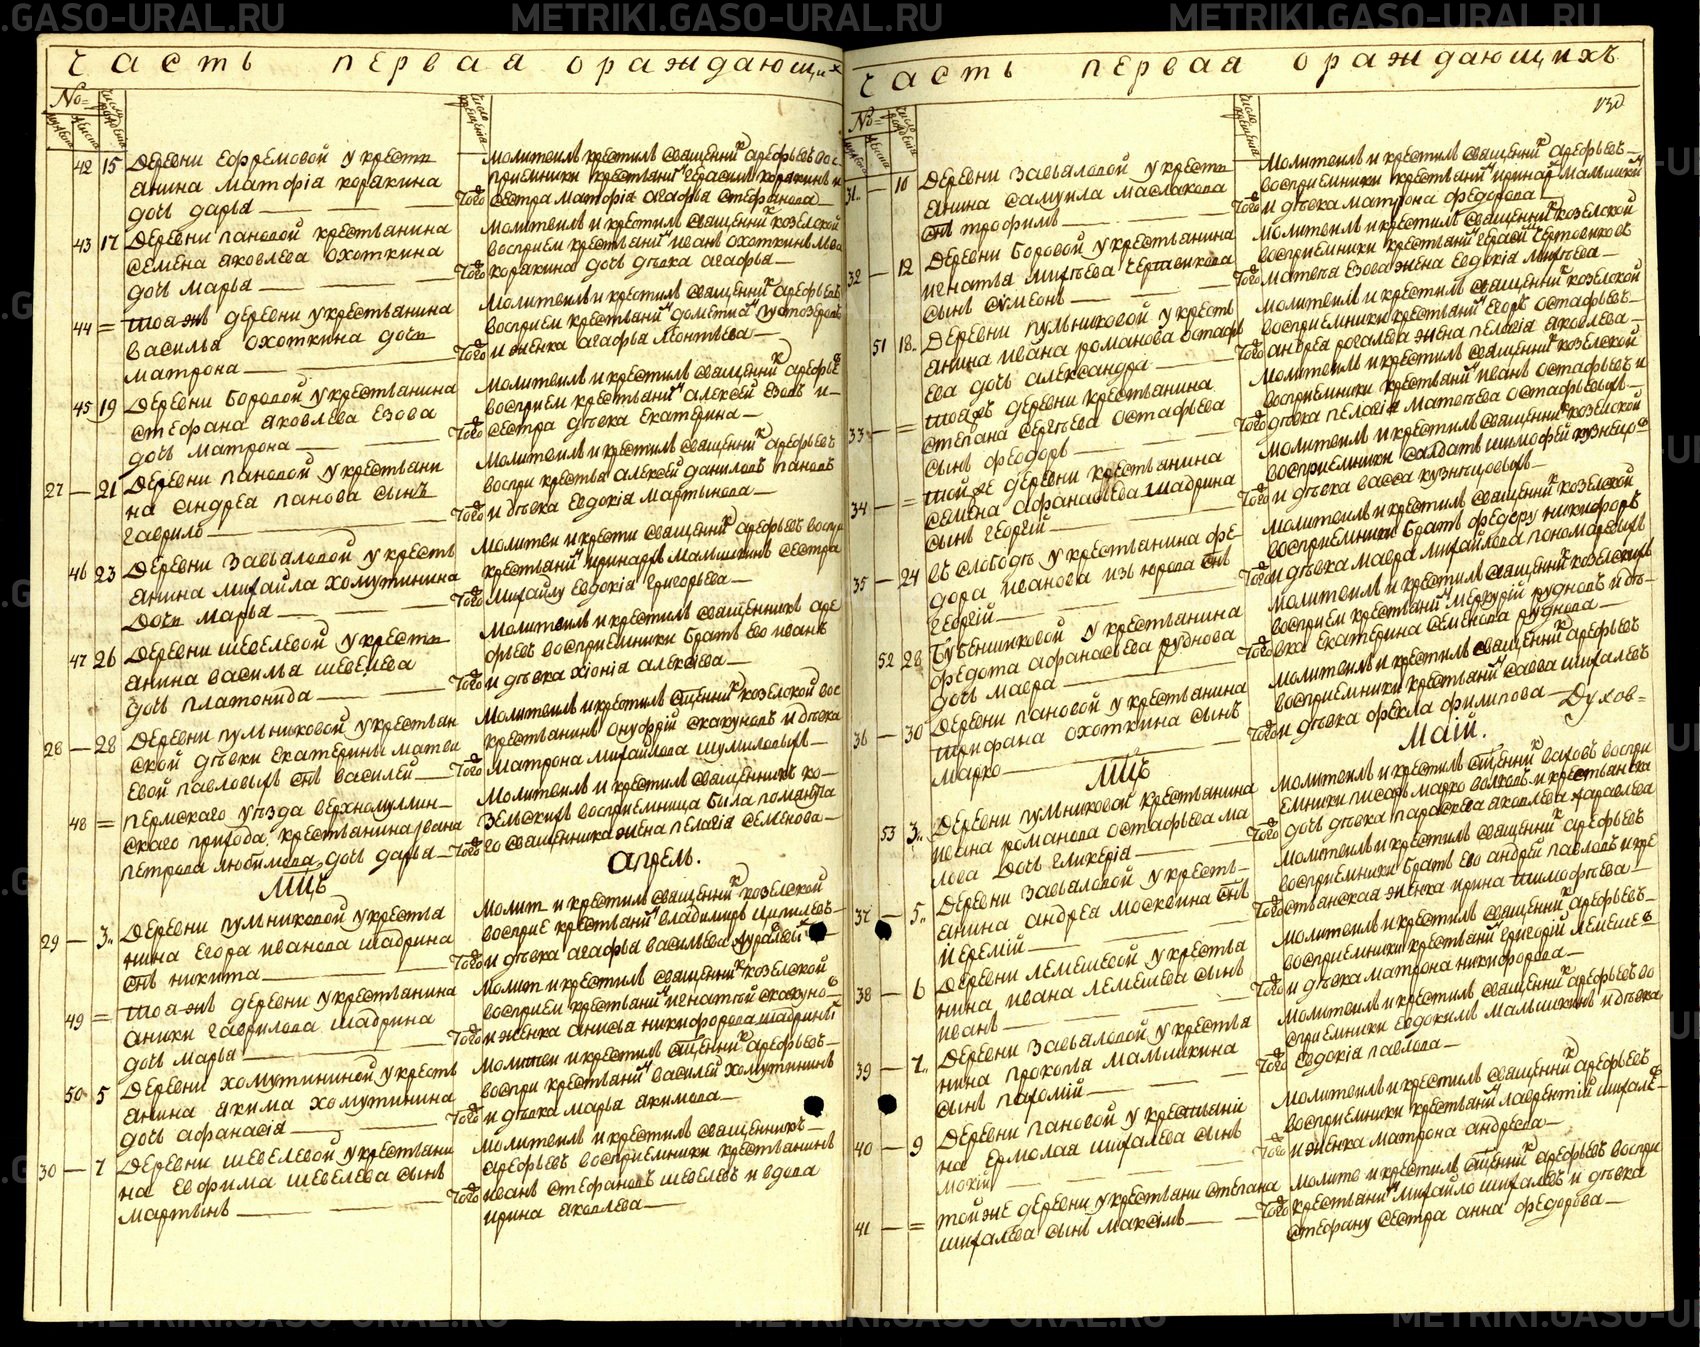 METRIKI.GASO-URAL.RU
METRIKI.GASO-URAL.RU
Часть первая ораждающихъ
№
42 15 Деревни Ефремовой у крестья
янина Матофія Корякина
дочь Дарья
Того
Молитвилъ крестилъ священникъ Арефьевъ вос
приемники крестьянинъ Герасимъ Корякинъ и
сестра Матофія Агафья Стефанова
43 17 Деревни Пановой крестьянина
Семена Яковлева Охоткина
дочь Марья
Того
Молитвилъ и крестилъ священникъ Козелской
восприем крестьянинъ Иванъ Охоткинъ Льва
Корякина дочь дѣвка Агафья
44 = тоя жъ деревни у крестьянина
Василья Охоткина дочь
Матрона
Того
Молитвилъ и крестилъ священникъ Арефьевъ
восприем крестьянинъ Дометий
и женка Агафья Леонтьева
45 19 Деревни Боровой у крестьянина
Стефана Яковлева Езова
дочь Матрона
Того
Молитвилъ и крестилъ священникъ Арефьев
восприем крестьянинъ Алексей Езовъ и
сестра девка Екатерина
27 — 21 Деревни Пановой у крестьяни
на Андрея Панова сынъ
Гаврило
Того
Молитвилъ и крестилъ священникъ Арефьевъ
воспри крестья Алексей Даниловъ Пановъ
и дѣвка Евдокія Мартынова
46 23 Деревни Завьяловой у кресть
янина Михайла Хомутинина
дочь Марья
Того
Молитви и крести священникъ Арефьевъ воспр
крестьянинъ Иринархъ Малышкинъ сестра
Михайлу Евдокія Григорьева
47 26 Деревни Шевелевой у кресть
янина Василья Шевелева
дочь Платонида
Того
Молитвилъ и крестилъ священникъ Аре
фьевъ восприемники братъ Ево Иванъ
и дѣвка Хіонія Алексіева
28 — 28 Деревни Пульниковой у крестьян
ской дѣвки Екатерины Матве
евой Павловыхъ снъ Василей
Того
Молитвилъ и крестилъ сщенникъ Козелской вос
крестьянинъ Онуфрій Скакуновъ и дѣвка
Матрона Михайлова Шумиловыхъ
48 = Пермскаго уѣзда Верхомуллин
скаго прихода, крестьянина Ивана
Петрова Любимова дочь Дарья
Того
Молитвилъ и крестилъ священникъ Ко
зельскихъ восприемница была помянута
го священника жена Пелагія Семенова
Мцъ Апрель.
29 — 3. Деревни Пульниковой у крестья
нина Егора Иванова Шадрина
снъ Никита
Того
Молит и крестилъ священникъ Козелской
восприе крестьянинъ Владимиръ Ципилевъ
и дѣвка Агафья Васильева
49 = тоя жъ деревни у крестьянина
Аники Гаврилова Шадрина
дочь Марья
Того
Молит и крестилъ священникъ Козелской
восприем крестьянинъ Игнатій Скакунов
и женка Анисья Никифорова Шадриных
50 5 Деревни Хомутининой у кресть
янина Якима Хомутинина
дочь Афанасія
Того
Молитви и крестилъ сщенникъ Арефьевъ
воспри крестьянинъ Василей Хомутининъ
и дѣвка Марья Якимова
30 — 7 Деревни Шевелевой у крестьяни
на Евфима Шевелева сынъ
Мартынъ
Того
Молитвилъ и крестилъ священникъ
Арефьевъ восприемники крестьянинъ
Иванъ Стефановъ Шевелевъ и вдова
Ирина Яковлева
Часть первая ораждающихъ
130
№
31. — 10 Деревни Завьяловой у кресть
янина Самуила Маслакова
снъ Трофимъ
Того
Молитвилъ и крестилъ священникъ Арефьевъ
восприемники крестьянинъ Иринар Малышкин
и дѣвка Матрона Федорова
32 — 12 Деревни Боровой у крестьянина
Игнатья Михеева Чертовикова
сынъ Сумеонъ
Того
Молитвилъ и крестилъ священникъ Козелской
восприемники крестьянинъ Герасим Чертовиковъ
Матвея Езова жена Евдокія Михеева
51 18. Деревни Пульниковой у кресть
янина Ивана Романова Остафь
ева дочь Александра
Того
Молитвилъ и крестилъ священникъ Козелской
восприемники крестьянинъ Егоръ Остафьевъ
Андрея Рогалева жена Пелагія Яковлева
33 — = тояжъ деревни крестьянина
Степана Сергѣева Остафьева
сынъ Феодоръ
Того
Молитвилъ и крестилъ священникъ Козелской
восприемники крестьянинъ Иванъ Остафьевъ и
дѣвка Пелагія Матвеева Остафьевыхъ
34 — = той же деревни крестьянина
Семена Афанасьева Шадрина
сынъ Георгій
Того
Молитвилъ и крестилъ священникъ Козелской
восприемники салдатъ Тимофей Кузнецов
и дѣвка Васса Кузнецовыхъ
35 — 24 въ слободѣ у крестьянина Фе
дора Иванова снъ
Георгій
Того
Молитвилъ и крестилъ священникъ Козелской
восприемники братъ Федору Никифоръ
и дѣвка Мавра Михайлова Пономаревыхъ
52 28 Бубенщиковой у крестьянина
Федота Афанасьева Руднова
дочь Мавра
Того
Молитвилъ и крестилъ священникъ Козелскихъ
восприем крестьянинъ Меркурій Рудновъ и дѣ
вка Екатерина Семенова Руднова
36 — 30 Деревни Пановой у крестьянина
Трифана Охоткина сынъ
Марко
Того
Молитвилъ и крестилъ священникъ Арефьевъ
восприемники крестьянинъ Савва Шихалевъ
и дѣвка Фекла Филипова Духов=
Мцъ Маій.
53 3.. Деревни Пульниковой крестьянина
Ивана Романова Остафьева Ма
лова дочь Гликерія
Того
Молитвилъ и крестилъ сщенникъВаховъ воспри
емники писарь Марко Волковъ и крестьянска
дочь дѣвка Параскева Яковлева Журавлева
37 — 5.. Деревни Завьяловой у кресть
янина Андрея Москвина снъ
Иеремій
Того
Молитвилъ и крестилъ священникъ Арефьевъ
восприемники братъ Ево Андрей Павловъ и кре
стьянская женка Ирина Тимофеева
38 — 6 Деревни Лемешевой у крестья
нина Ивана Лемешева сынъ
Иванъ
Того
Молитвилъ и крестилъ священникъ Арефьевъ
восприемники крестьянинъ Григорій Лемешев
и дѣвка Матрона Никифорова
39 — 7.. Деревни Завьяловой у крестья
нина Прокопья Малышкина
сынъ Пахомій
Того
Молитвилъ и крестилъ священникъ Арефьевъ во
сприемники Евдокимъ Малышкинъ и дѣвка
Евдокія Павлова
40 — 9 Деревни Пановой у крестьяни
на Ермолая Шихалева сынъ
Мокий
Того
Молитвилъ и крестилъ священникъ Арефьевъ
восприемники крестьянинъ Лаврентій Шихалев
и женка Матрона Андреева
41 — = той же деревни у крестьяни Степана
Шихалева сынъ Максимъ
Того
Молитв и крестилъ сщенникъ Арефьевъ воспри
крестьянинъ Михайло Шихалевъ и дѣвка
Стефану сестра Анна Федорова
METRIKI.GASO-URAL.RU
METRIKI.GASO-URAL.RU